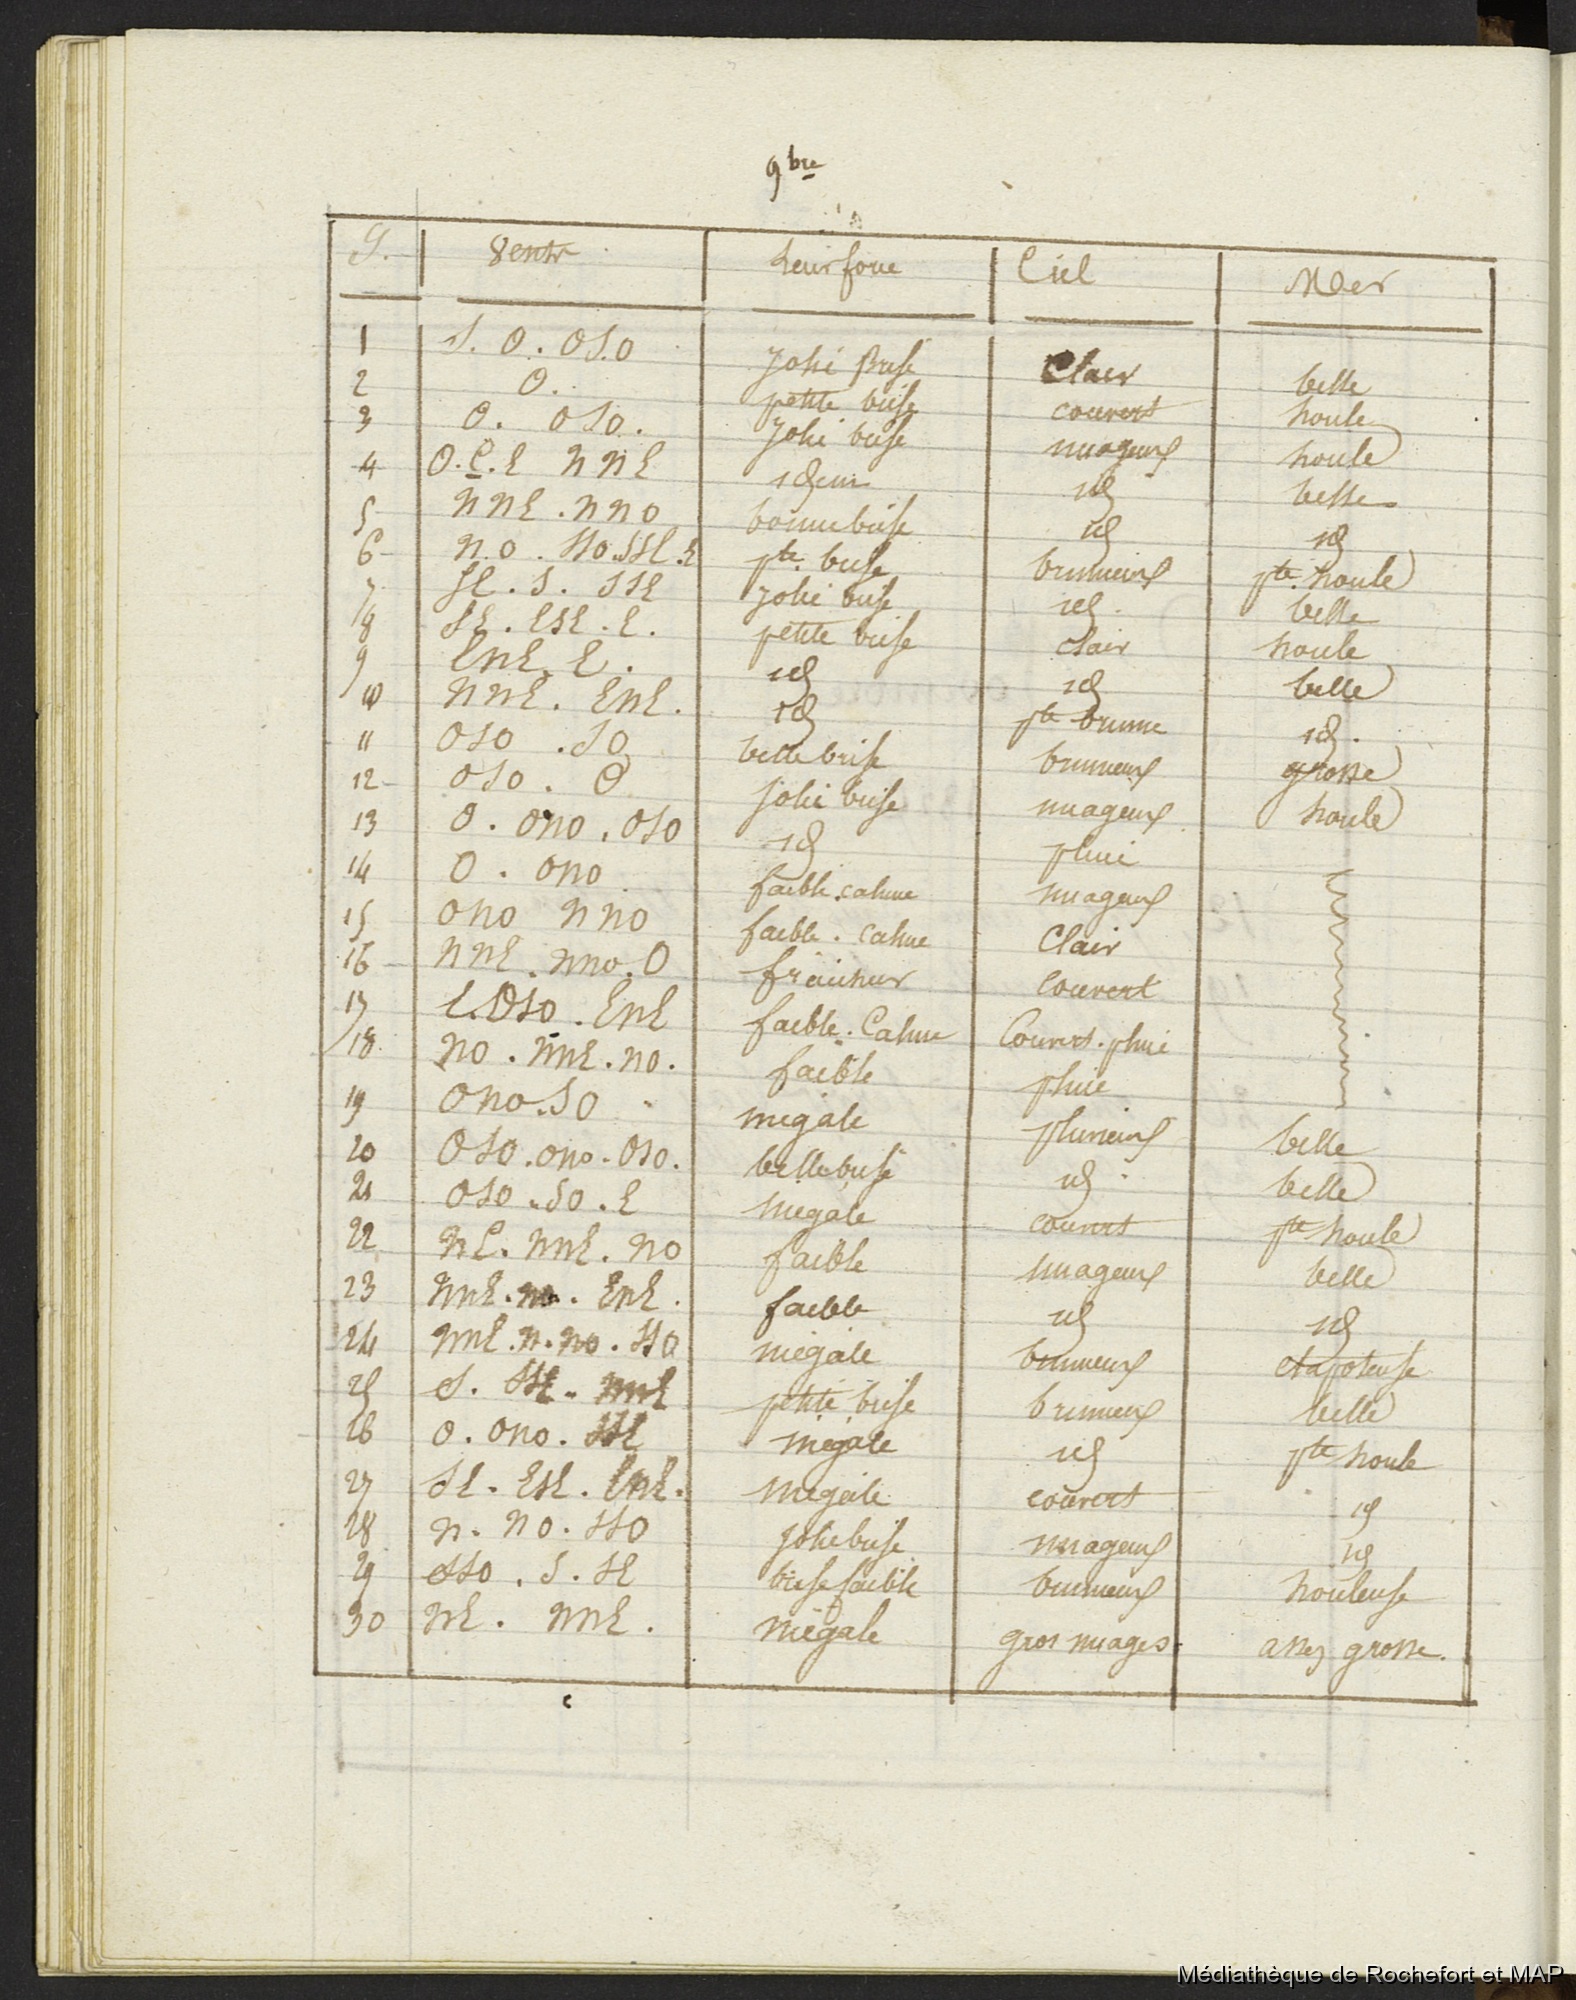 9bre
J. Vents Leur force Ciel Mer
1 S. O. OSO Jolie Brise Clair belle
2 O. petite brise couvert houle
3 O. OSO. Jolie brise nuageux houle
4 O. E. E NNE idem id belle
5 NNE. NNO bonne brise id id
6 N.O. SSO. SSE. E pte brise brumeux pte houle
7 SE. S. SSE jolie brise id. belle
8 SE. ESE. E. petite brise clair houle
9 ENE. E. id id belle
10 NNE. ENE. id pte brume id.
11 OSO. SO belle brise brumeux grosse
12 OSO. O jolie brise nuageux houle
13 O. ONO. OSO id pluie
14 O. ONO faible. calme nuageux
15 ONO NNO faible. calme Clair
16 NNE. NNO. O fraicheur couvert
17 E. OSO. ENE faible. Calme Couvert. pluie
18 NO. NNE. NO. faible pluie
19 ONO. SO inégale pluvieux belle
20 OSO. ONO. OSO. belle brise id. belle
21 OSO. SO. E inégale couvert pte houle
22 NE. NNE. NO faible nuageux belle
23 NNE. ENE. faible id id
24 NNE. N. NO. SSO inégale brumeux clapoteuse
25 S. SSE. NNE petite brise brumeux belle
26 O. ONO. SSE inégale id pte houle
27 SE. ESE. ENE. inégale couvert id
28 N. NO. SSO jolie brise nuageux id
29 SSO. S. SE brise faible brumeux houleuse
30 NE. NNE. inégale gros nuages assez grosse.
Médiathèque de Rochefort et MAP